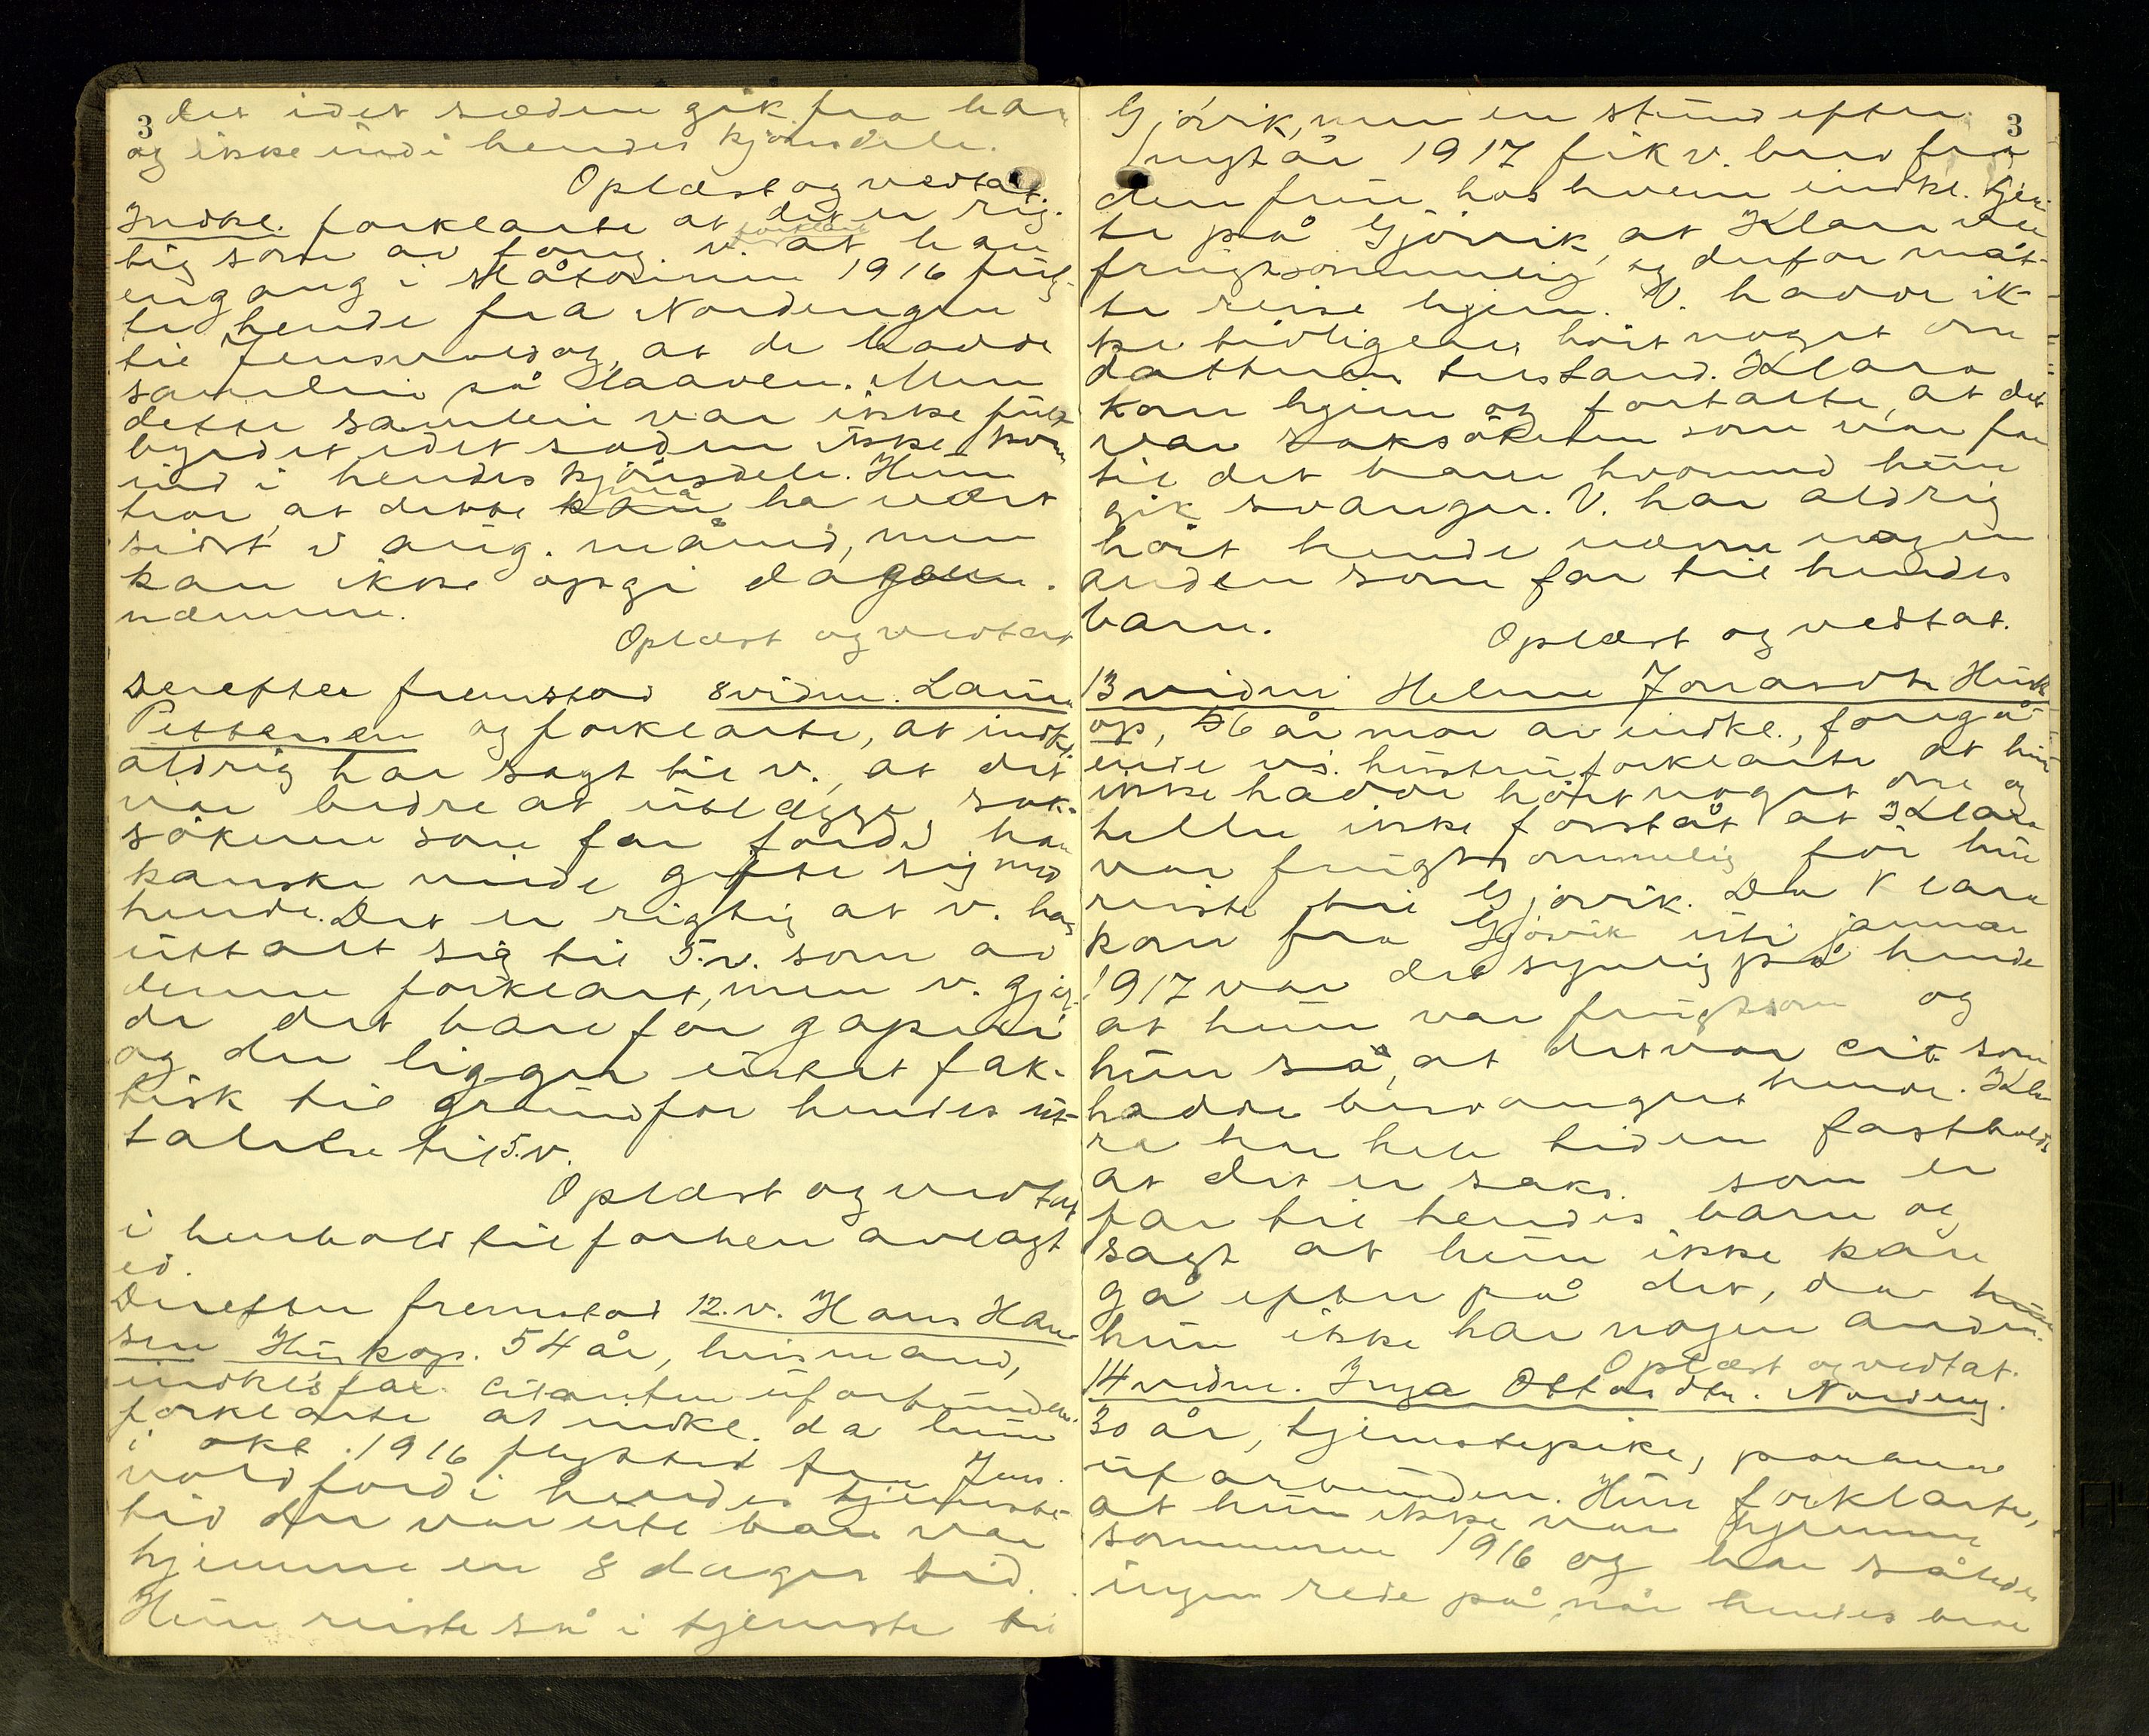 3
det idet sæden gik fra ham
og ikke ind i hendes kjönsdele.
Oplæst og vedtatt.
Indkl. forklarte at det er rig-
tig som av forrig v. forklart at han
engang i slåtonnen 1916 fulg-
te hende fra Nordengen
til Jensvold og at de hadde
samleie på Haaven. Men
dette samleie var ikke fuld-
byrdet idet sæden ikke kom
ind i hendes kjönsdele. Hun
tror, at dette må ha vært
sidst i aug. måned, men
kan ikke opgi dagen
nærmere.
Oplæst og vedtat
Derefter fremstod 8 vidne. Laura
Pettersen og forklarte, at indkl.
aldrig har sagt til v., at det
var bedre at utlægge sak-
sökeren som far fordi han
kanske vilde gifte sig med
hende. Det er rigtig at v. har
uttalt sig til 5.v. som av
denne forklart, men v. gjor-
de det bare for gaperi
og der ligger intet fak-
tisk til grund for hendes ut-
talelse til 5.v.
Oplæst og vedtat
i henhold til forhen avlagt
ed.
Derefter fremstod 12. v. Hans Han-
sen Huskop. 54 år, husmand,
indkl's far. Citanten uforbunden
forklarte at indkl. da hun
i okt. 1916 flyttet fra Jens-
vold fordi hendes tjeneste-
tid der var ute bare var
hjemme en 8 dages tid.
Hun reiste så i tjeneste til
3
Gjövik, men en stund efter
nyt år 1917 fik v. bud fra
den frue hos hvem indkl. tjen-
te på Gjövik, at Klara var
frugtsommelig og derfor måt-
te reise hjem. V. hadde ik-
ke tidligere hört noget om
datterens tilstand. Klara
kom hjem og fortalte, at det
var saksökeren som var far
til det barn hvormed hun
gik svanger. V. har aldrig
hört hende nævne nogen
anden som far til hendes
barn.
Oplæst og vedtat.
13 vidne Helene Jonasdtr Husk-
op, 56 år mor av indkl., foregå-
ende v's. hustru forklarte at hun
ikke hadde hört noget om og
heller ikke forståt at Klara
var frugtsommelig för hun
reiste til Gjövik. Da Klara
kom fra Gjövik uti januar
1917 var det synlig på hende
at hun var frugtsom og
hun sa, at det var cit. som
hadde besvangret hende. Kla-
ra har hele tiden fastholdt
at det er saks. som er
far til hendes barn og
sagt at hun ikke kan
gå efter på det, da hun
hun ikke har nogen anden.
Oplæst og vedtat.
14 vidne. Inga Ottarsdtr. Nordeng.
30 år, tjenestepike, parterne
uforbunden. Hun forklarte,
at hun ikke var hjemme
sommeren 1916 og har således
ingen rede på når hendes bror